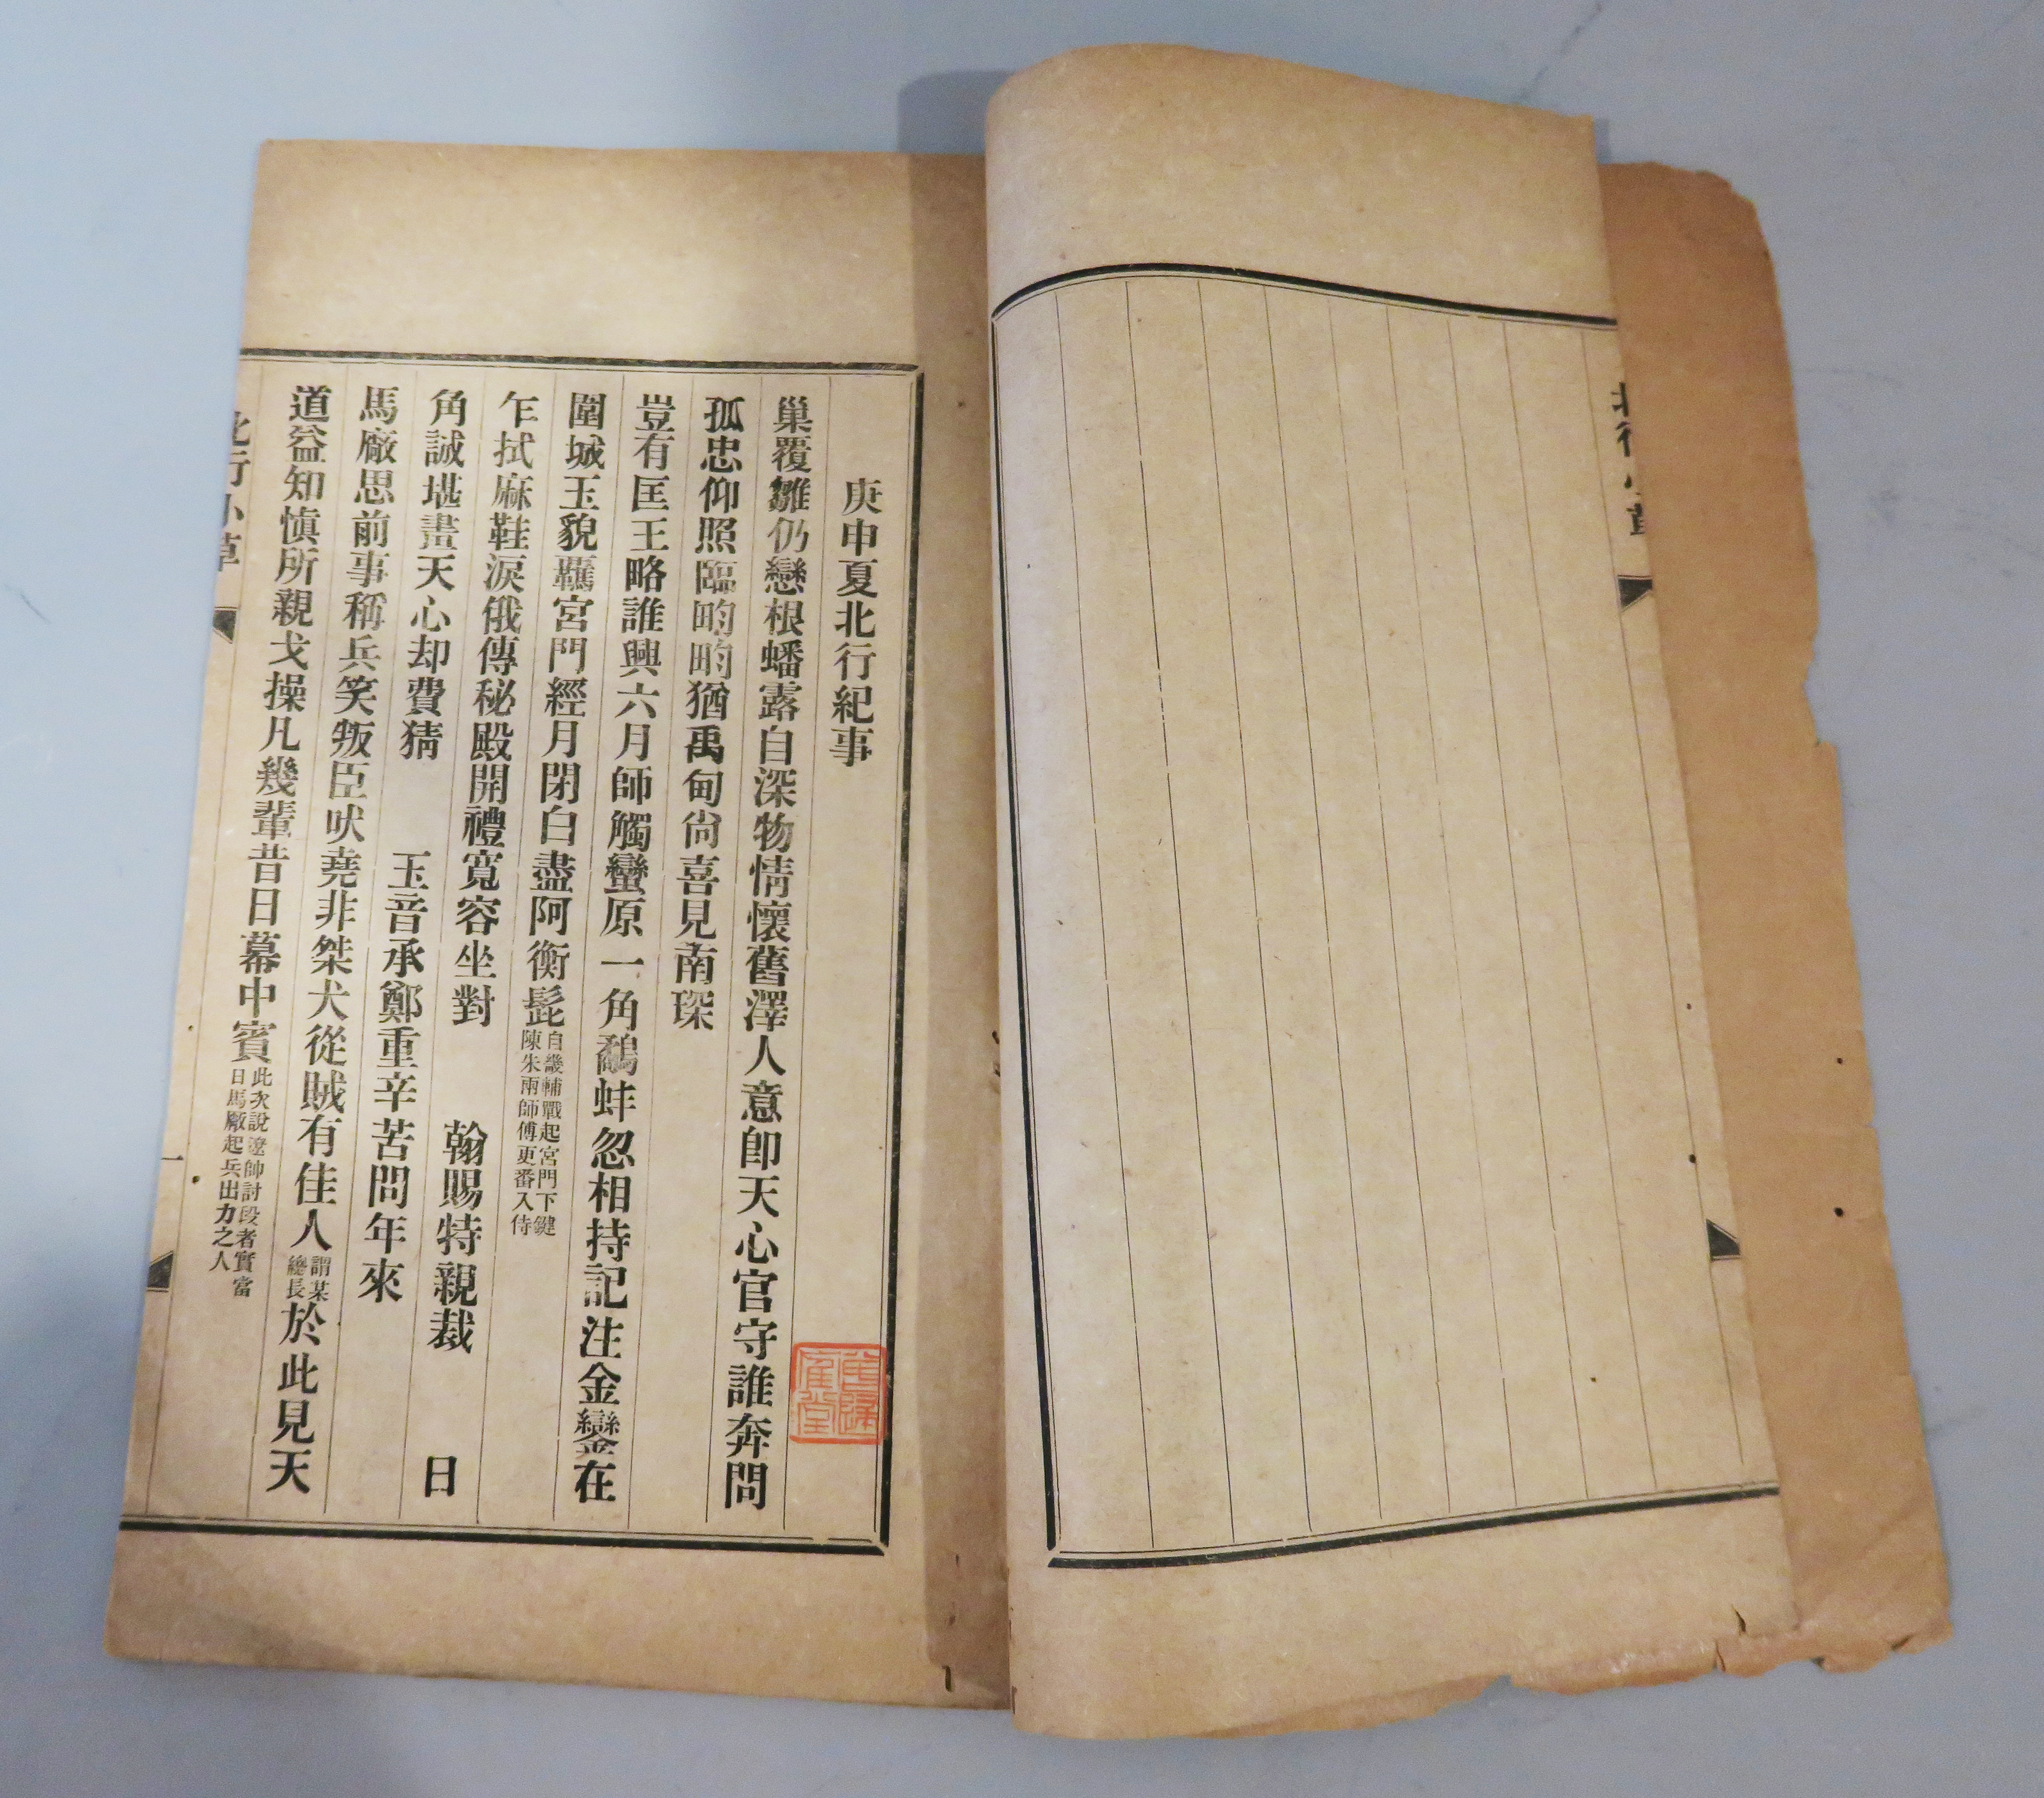 庚申夏北行紀事
巢覆雛仍戀根蟠露自深物情懷舊澤人意卽天心官守誰奔問
孤忠仰照臨畇畇猶禹甸尙喜見南琛
豈有匡王略誰興六月師觸蠻原一角鷸蚌忽相持記注金鑾在
圍城玉貌羈宮門經月閉白盡阿衡髭
自畿輔戰起宮門下鍵
陳朱兩師傅更番入侍
乍拭麻鞋淚俄傳秘殿開禮寬容坐對
翰賜特親裁
日
角誠堪晝天心却費猜
玉音承鄭重辛苦問年來
馬廠思前事稱兵笑叛臣吠堯非桀犬從賊有佳人
謂某
總長
於此見天
道益知愼所親戈操凡幾輩昔日幕中賓
此次說遼帥討段者實當
日馬廠起兵出力之人
北行小草
一
北行小草